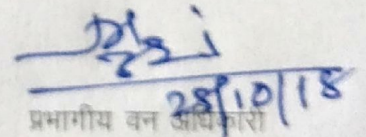 28/10/18
प्रभागीय वन अधिकारी